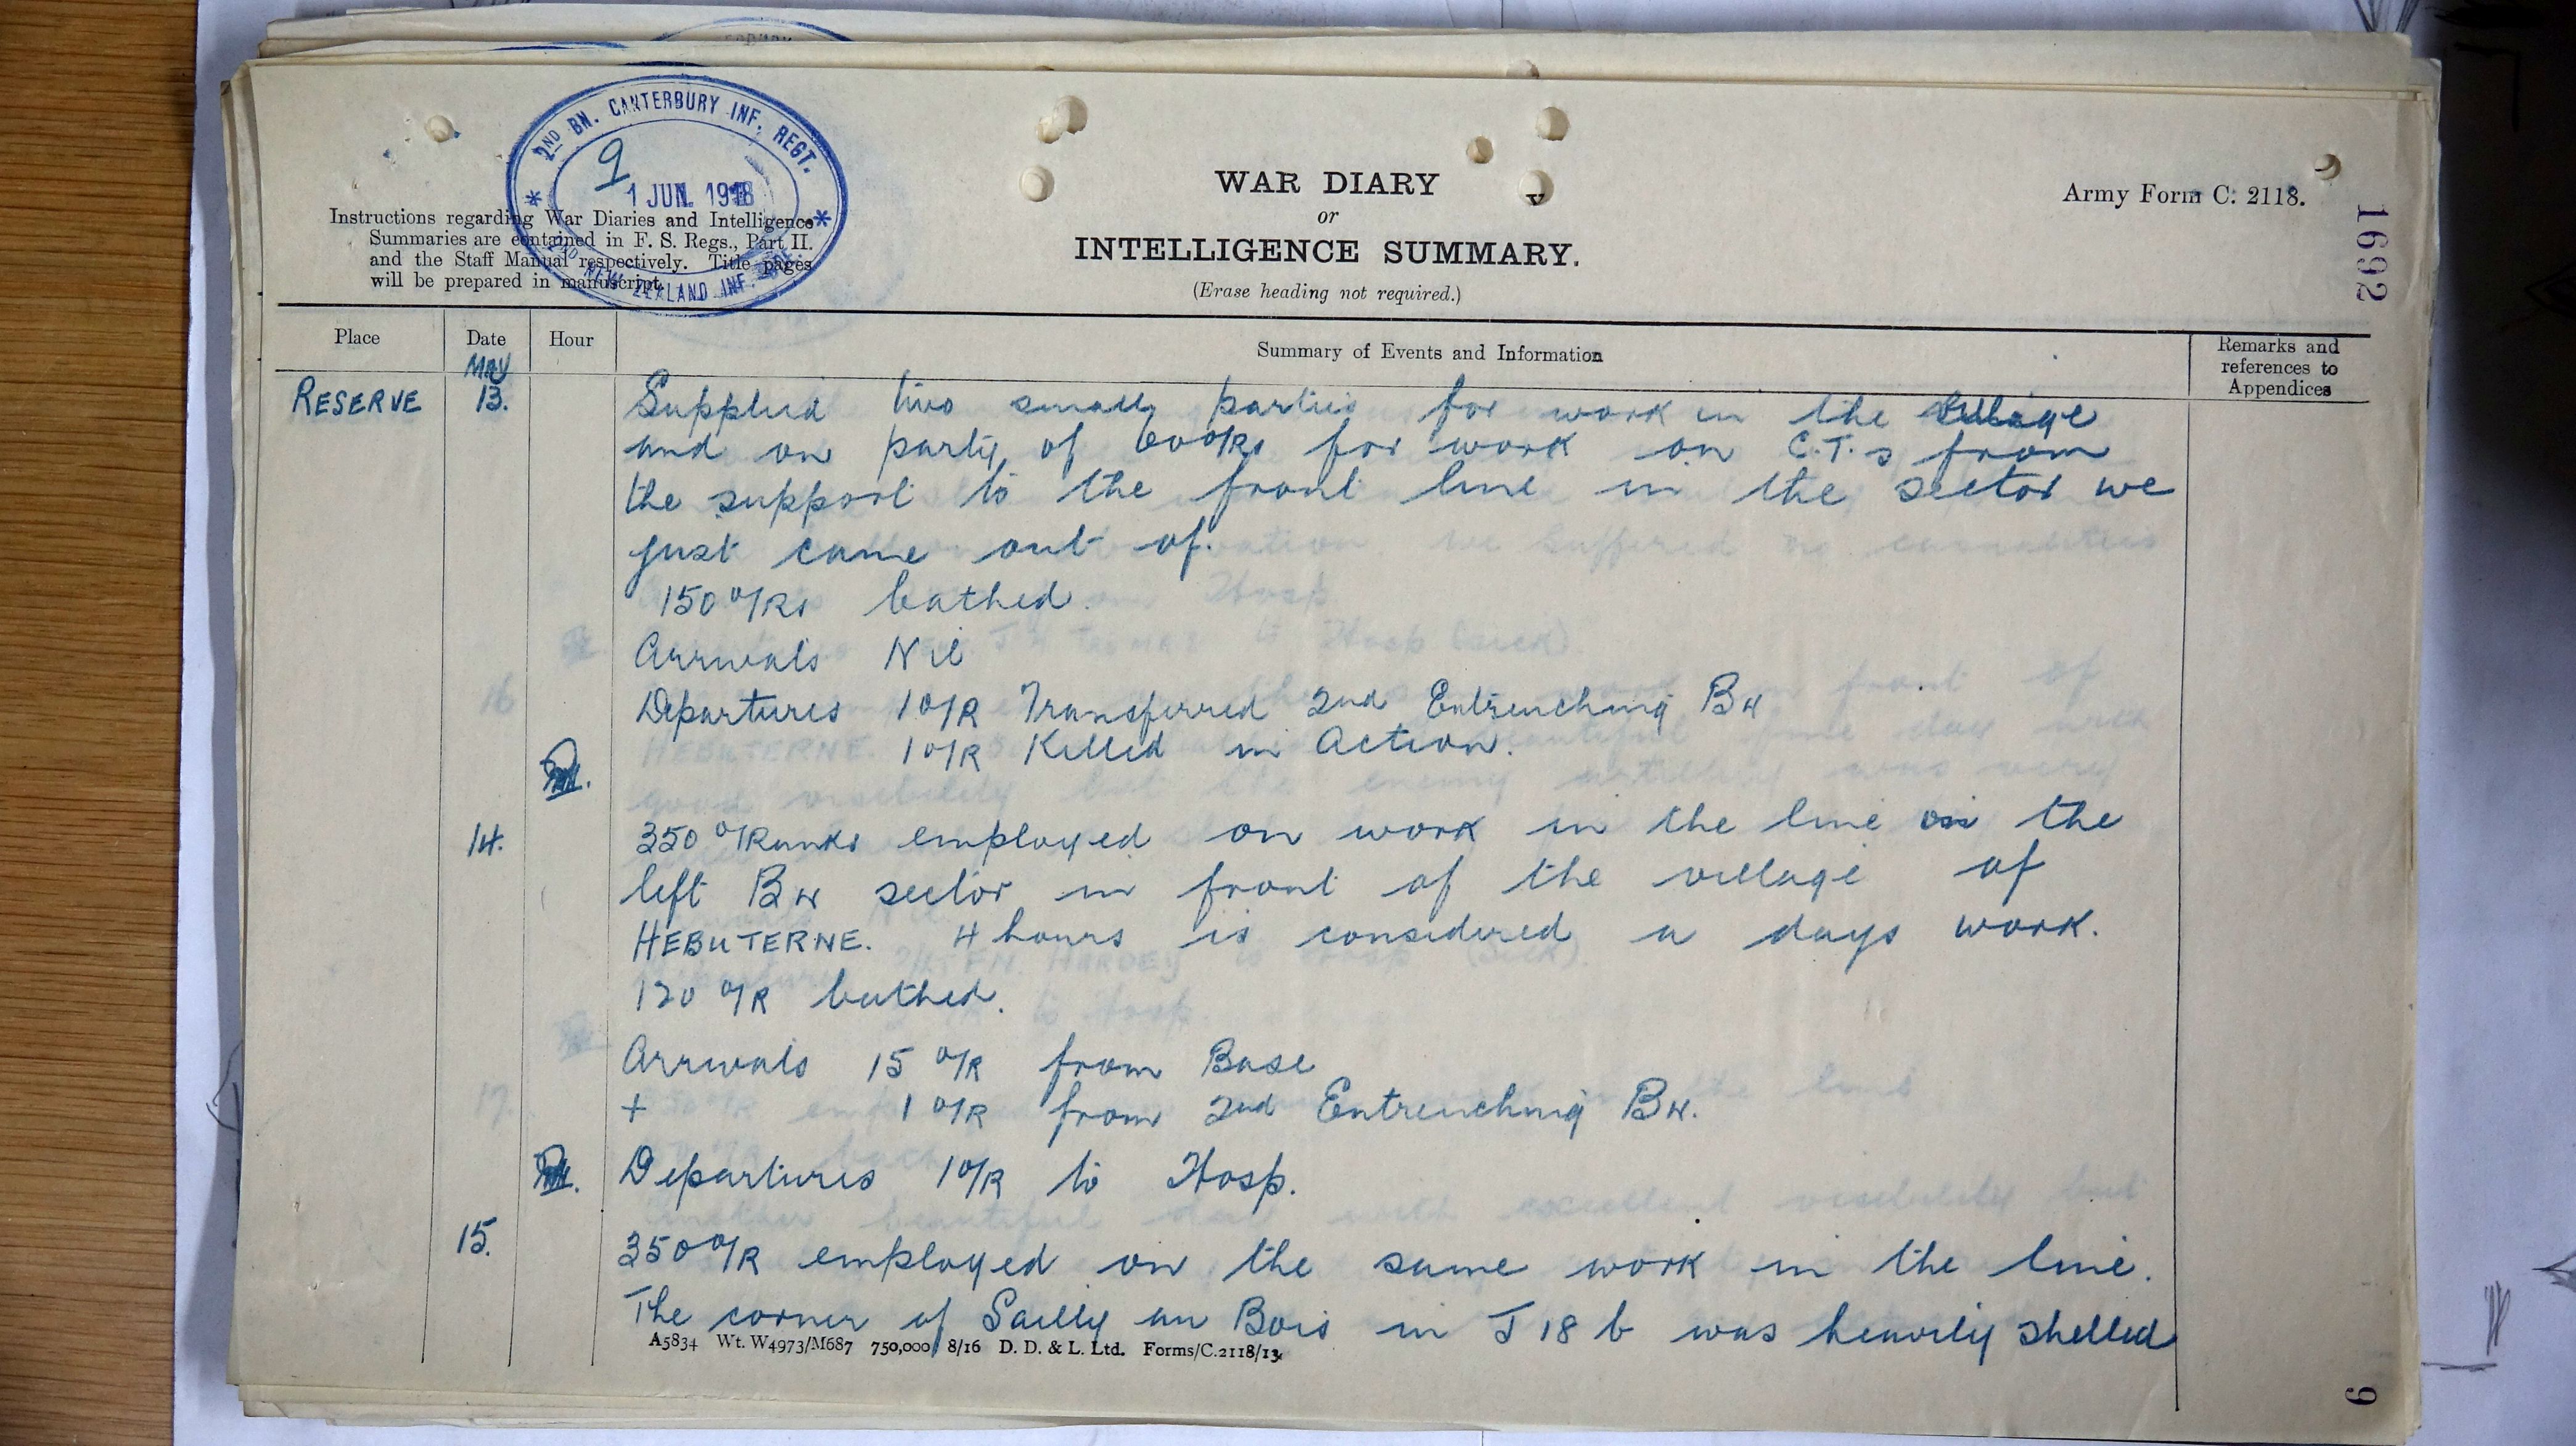 2ND BN. CANTERBURY INF. REGT.
9
1 JUN. 1918
2ND NEW ZEALAND INF.
Instructions regarding War Diaries and Intelligence
Summaries are contained in F. S. Regs., Part II.
and the Staff Manual respectively. Title pages
will be prepared in manuscript.
WAR DIARY
or
INTELLIGENCE SUMMARY.
(Erase heading not required.)
Army Form C. 2118.
1692
Place Date Hour Summary of Events and Information Remarks and references to Appendices
MAY
RESERVE 13. Supplied two small parties for work in the village
and on party of 60 O/Rs for work on C.T.s from
the support to the front line in the sector we
just came out of.
150 O/Rs bathed.
Arrivals Nil
Departures 1 O/R Transferred 2nd Entrenching Bn
1 O/R Killed in Action.
14. 350 O/Ranks employed on work in the line in the
left Bn sector in front of the village of
HEBUTERNE. 4 hours is considered a days work.
120 O/R bathed.
Arrivals 15 O/R from Base
+ 1 O/R from 2nd Entrenching Bn.
Departures 1 O/R to Hosp.
15. 350 O/R employed on the same work in the line.
The corner of Sailly au Bois in J 18 b was heavily shelled
A5834 Wt. W4973/M687 750,000 8/16 D. D. & L. Ltd. Forms/C.2118/13.
9